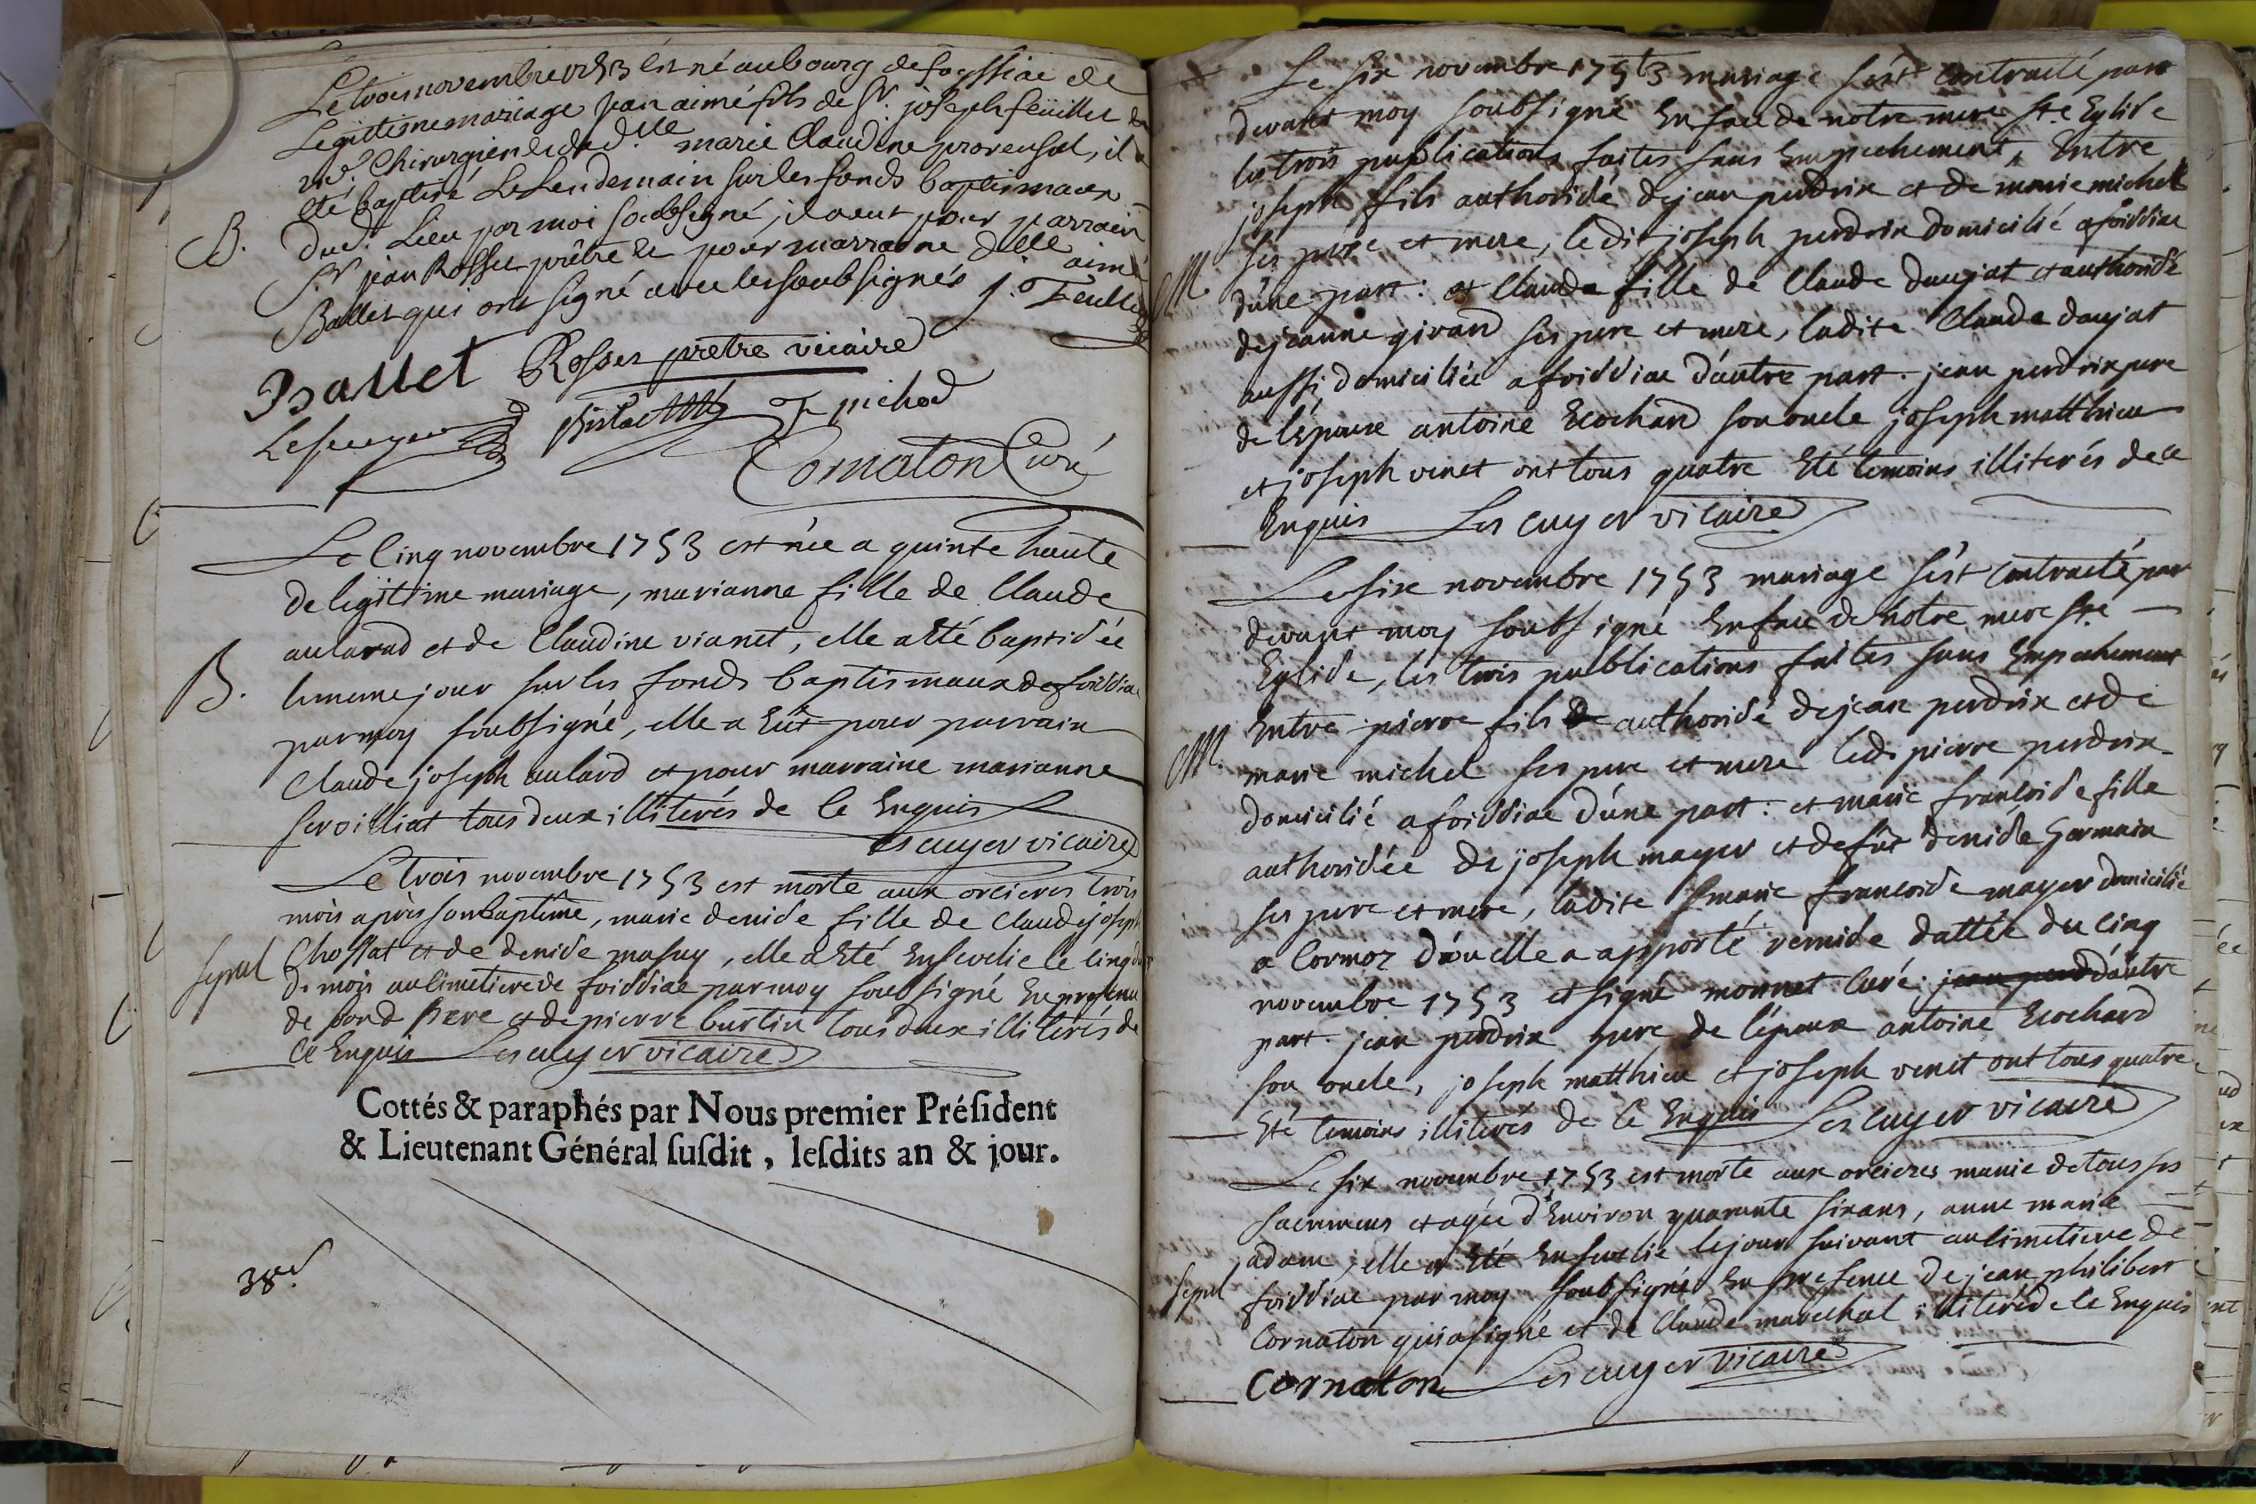 Le trois novembre 1753 est né au bourg de foyssiac de
Legitisme mariage Jean aimé fils de Sr. joseph feüillet
me. Chirurgien et de d.lle marie Claudine provensal, il a
été baptisé Le Lendemain sur les fonds baptismaux
B. dud. Lieu par moi soubsigné, il a eut pour parrain
Sr jean Rosset prêtre et pour marraine dlle aimé
Ballet qui ont signé avec les soubsignés J. Feuillet
Ballet Rosset prêtre vicaire
Lescuyer pichod
Cornaton Curé
Le Cinq novembre 1753 est née a quinte haute
de legitime mariage, marianne fille de Claude
aularad et de Claudine vianet, elle a êté baptisée
B. le meme jour sur les fonds baptismaux de foissiac
par moy soubsigné, elle a Eüt pour parrain
Claude joseph aulard et pour marraine marianne
servilliat tous deux illiterés de Ce Enquis
Lescuyer vicaire
Le trois novembre 1753 est morte aux orcieres trois
mois après son baptême, marie denise fille de Claude joseph
sepul Chossat et de denise masuy, elle a Eté Ensevelie le cinq du
d. mois au cimetiere de foissiac par moy soubsigné En presence
de sond. pere et de pierre burtin tous deux illiterés de
Ce Enquis Lescuyer vicaire
Cottés & paraphés par Nous premier Préſident
& Lieutenant Général ſuſdit, leſdits an & jour.
38e
Le six novembre 1753 mariage s'est Contracté par
devant moy soubsigné En face de notre mere Ste Eglise
les trois publications faites sans Empechement, Entre
joseph fils authorisé de jean perdrix et de marie michel
ses pere et mere, ledit joseph perdrix domicilié a foissiac
M. d'une part: et Claude fille de Claude daujat et authorisé
de jeanne girard ses pere et mere, ladite Claude daujat
aussi domiciliée a foissiac d'autre part. jean perdrix pere
de l'époux antoine Ecochard son oncle joseph matthieu
et joseph venet ont tous quatre Eté temoins illiterés de ce
Enquis Lescuyer vicaire
Le six novembre 1753 mariage s'est Contracté par
devant moy soubsigné En face de notre mere Ste
Eglise, les trois publications faites sans Empechement
Entre pierre fils de authorisé de jean perdrix et de
M. marie michel ses pere et mere led. pierre perdrix
domicilié a foissiac d'une part: et marie francoise fille
authorisée de joseph mayer et de fut denise Germain
ses pere et mere, ladite marie francoise mayer domicilié
a Cormoz d'ou elle a apporté remise dattée du cinq
novembre 1753 et signé monnet Curé: jean perd d'autre
part. jean perdrix pere de l'époux antoine Ecochard
son oncle, joseph matthieu et joseph venet ont tous quatre
Eté temoins illiterés de Ce Enquis Lescuyer vicaire
Le six novembre 1753 est morte aux orcieres munie de tous ses
sacremens et agée d'Environ quarante six ans, anne marie
adam, elle a Eté Ensevelie le jour suivant au cimetiere de
sepul foissiac par moy soubsigné En presence de jean philibert
Cornaton qui a signé et de Claude marechal illiteré de Ce Enquis
Cornaton Lescuyer vicaire